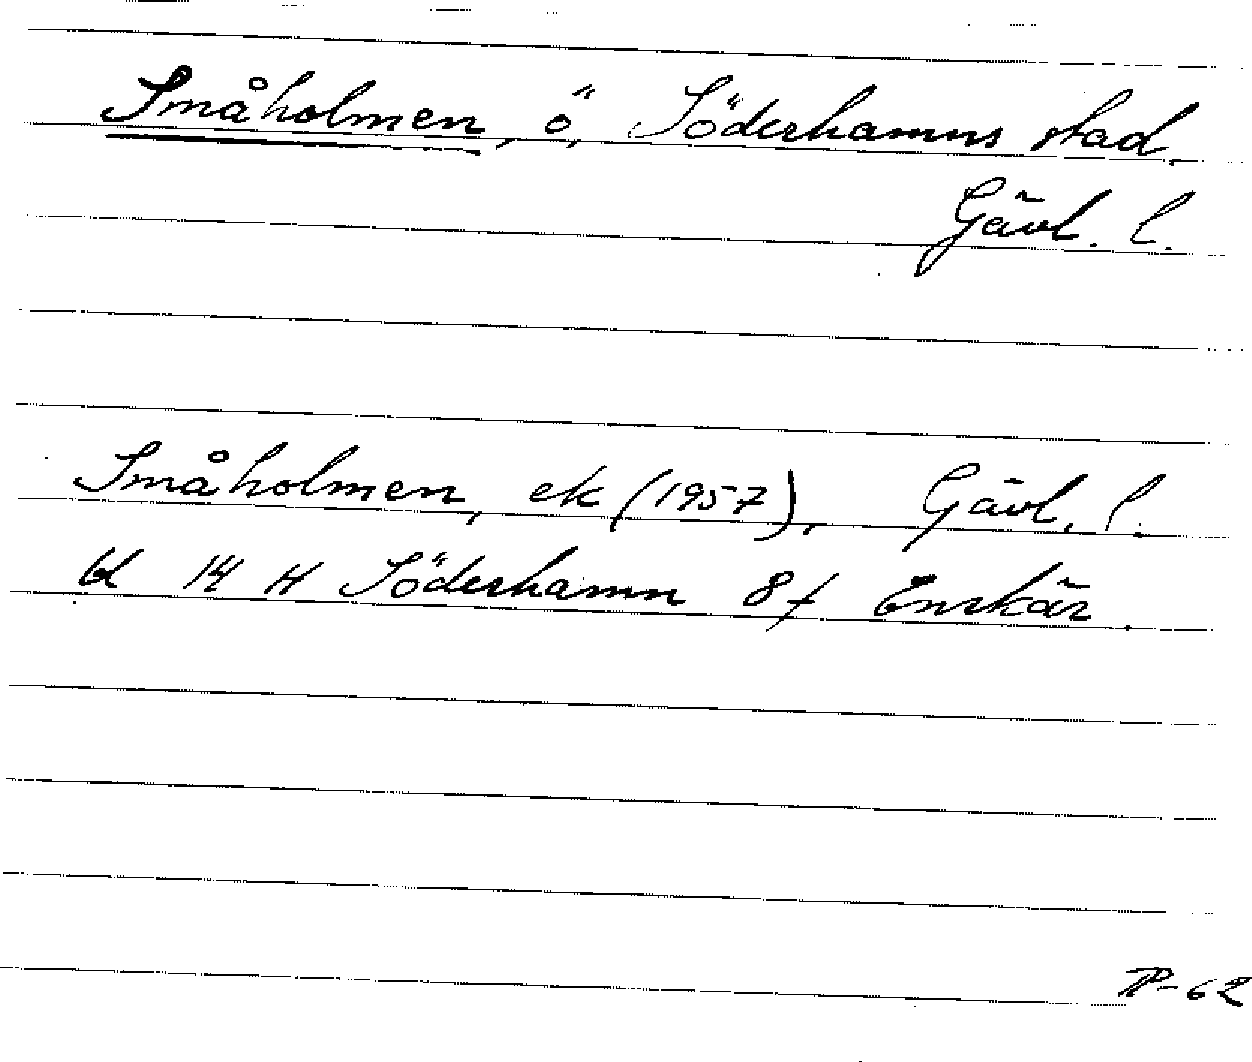 Småholmen, ö, Söderhamns stad.
Gävl. l.
Småholmen, ek (1957), Gävl. l.
bl 14 H Söderhamn 8f Enskär.